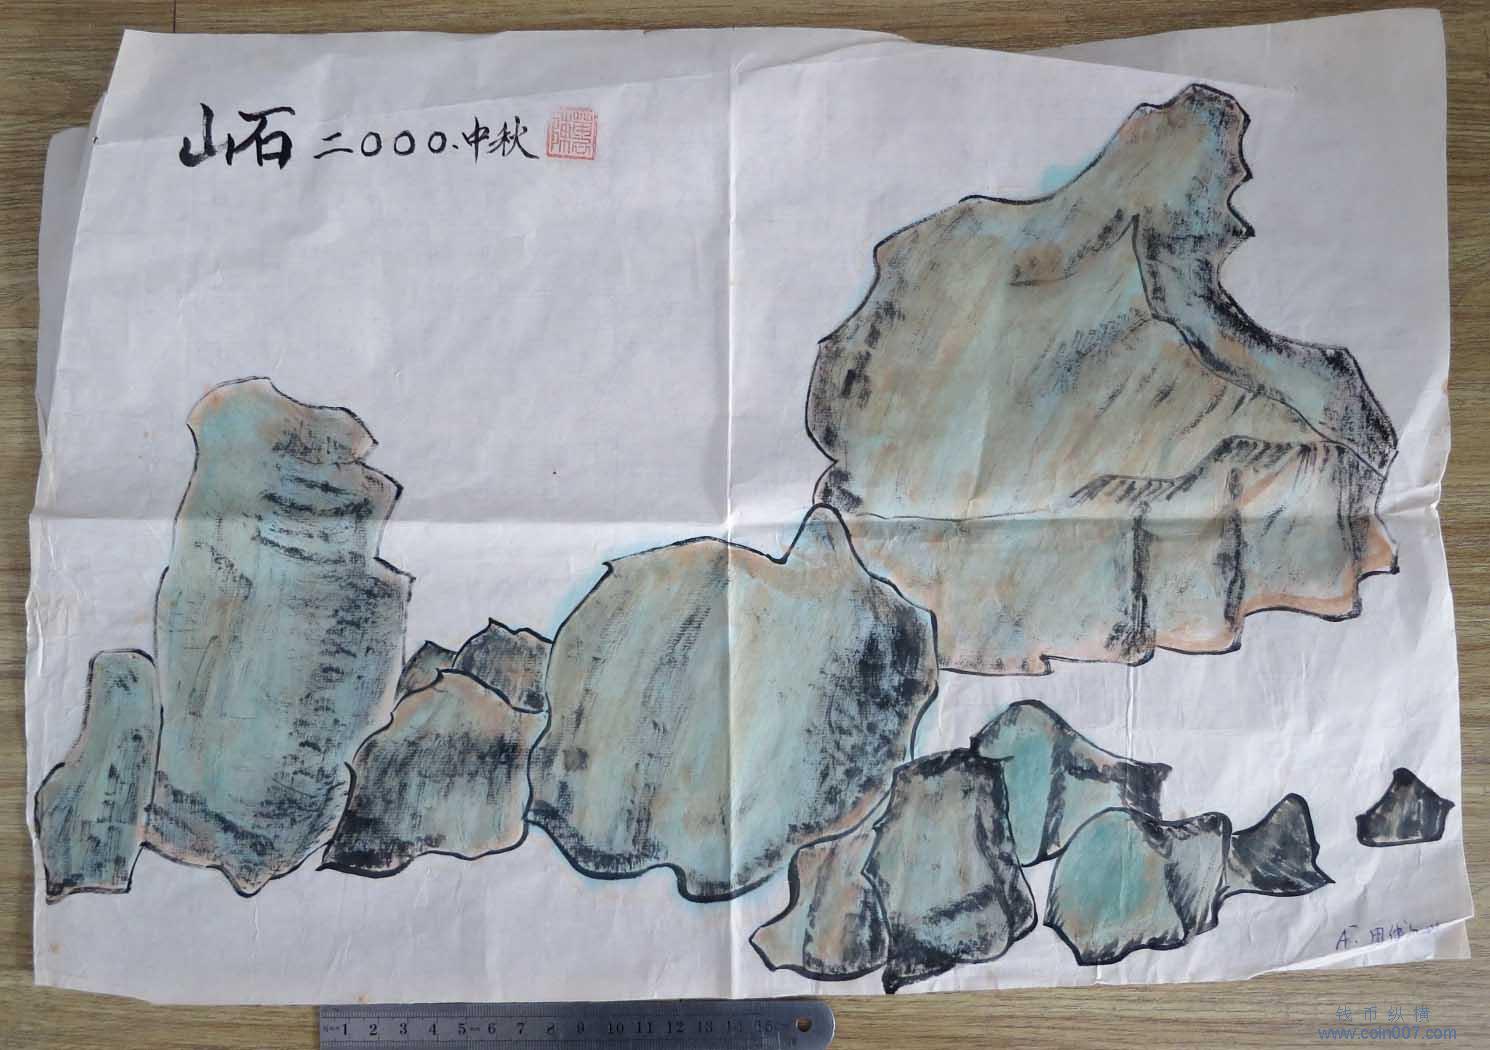 山石 二〇〇〇.中秋
A⁻. 用
1 2 3 4 5 6 7 8 9 10 11 12 13 14 15
钱币纵横
www.coin007.com